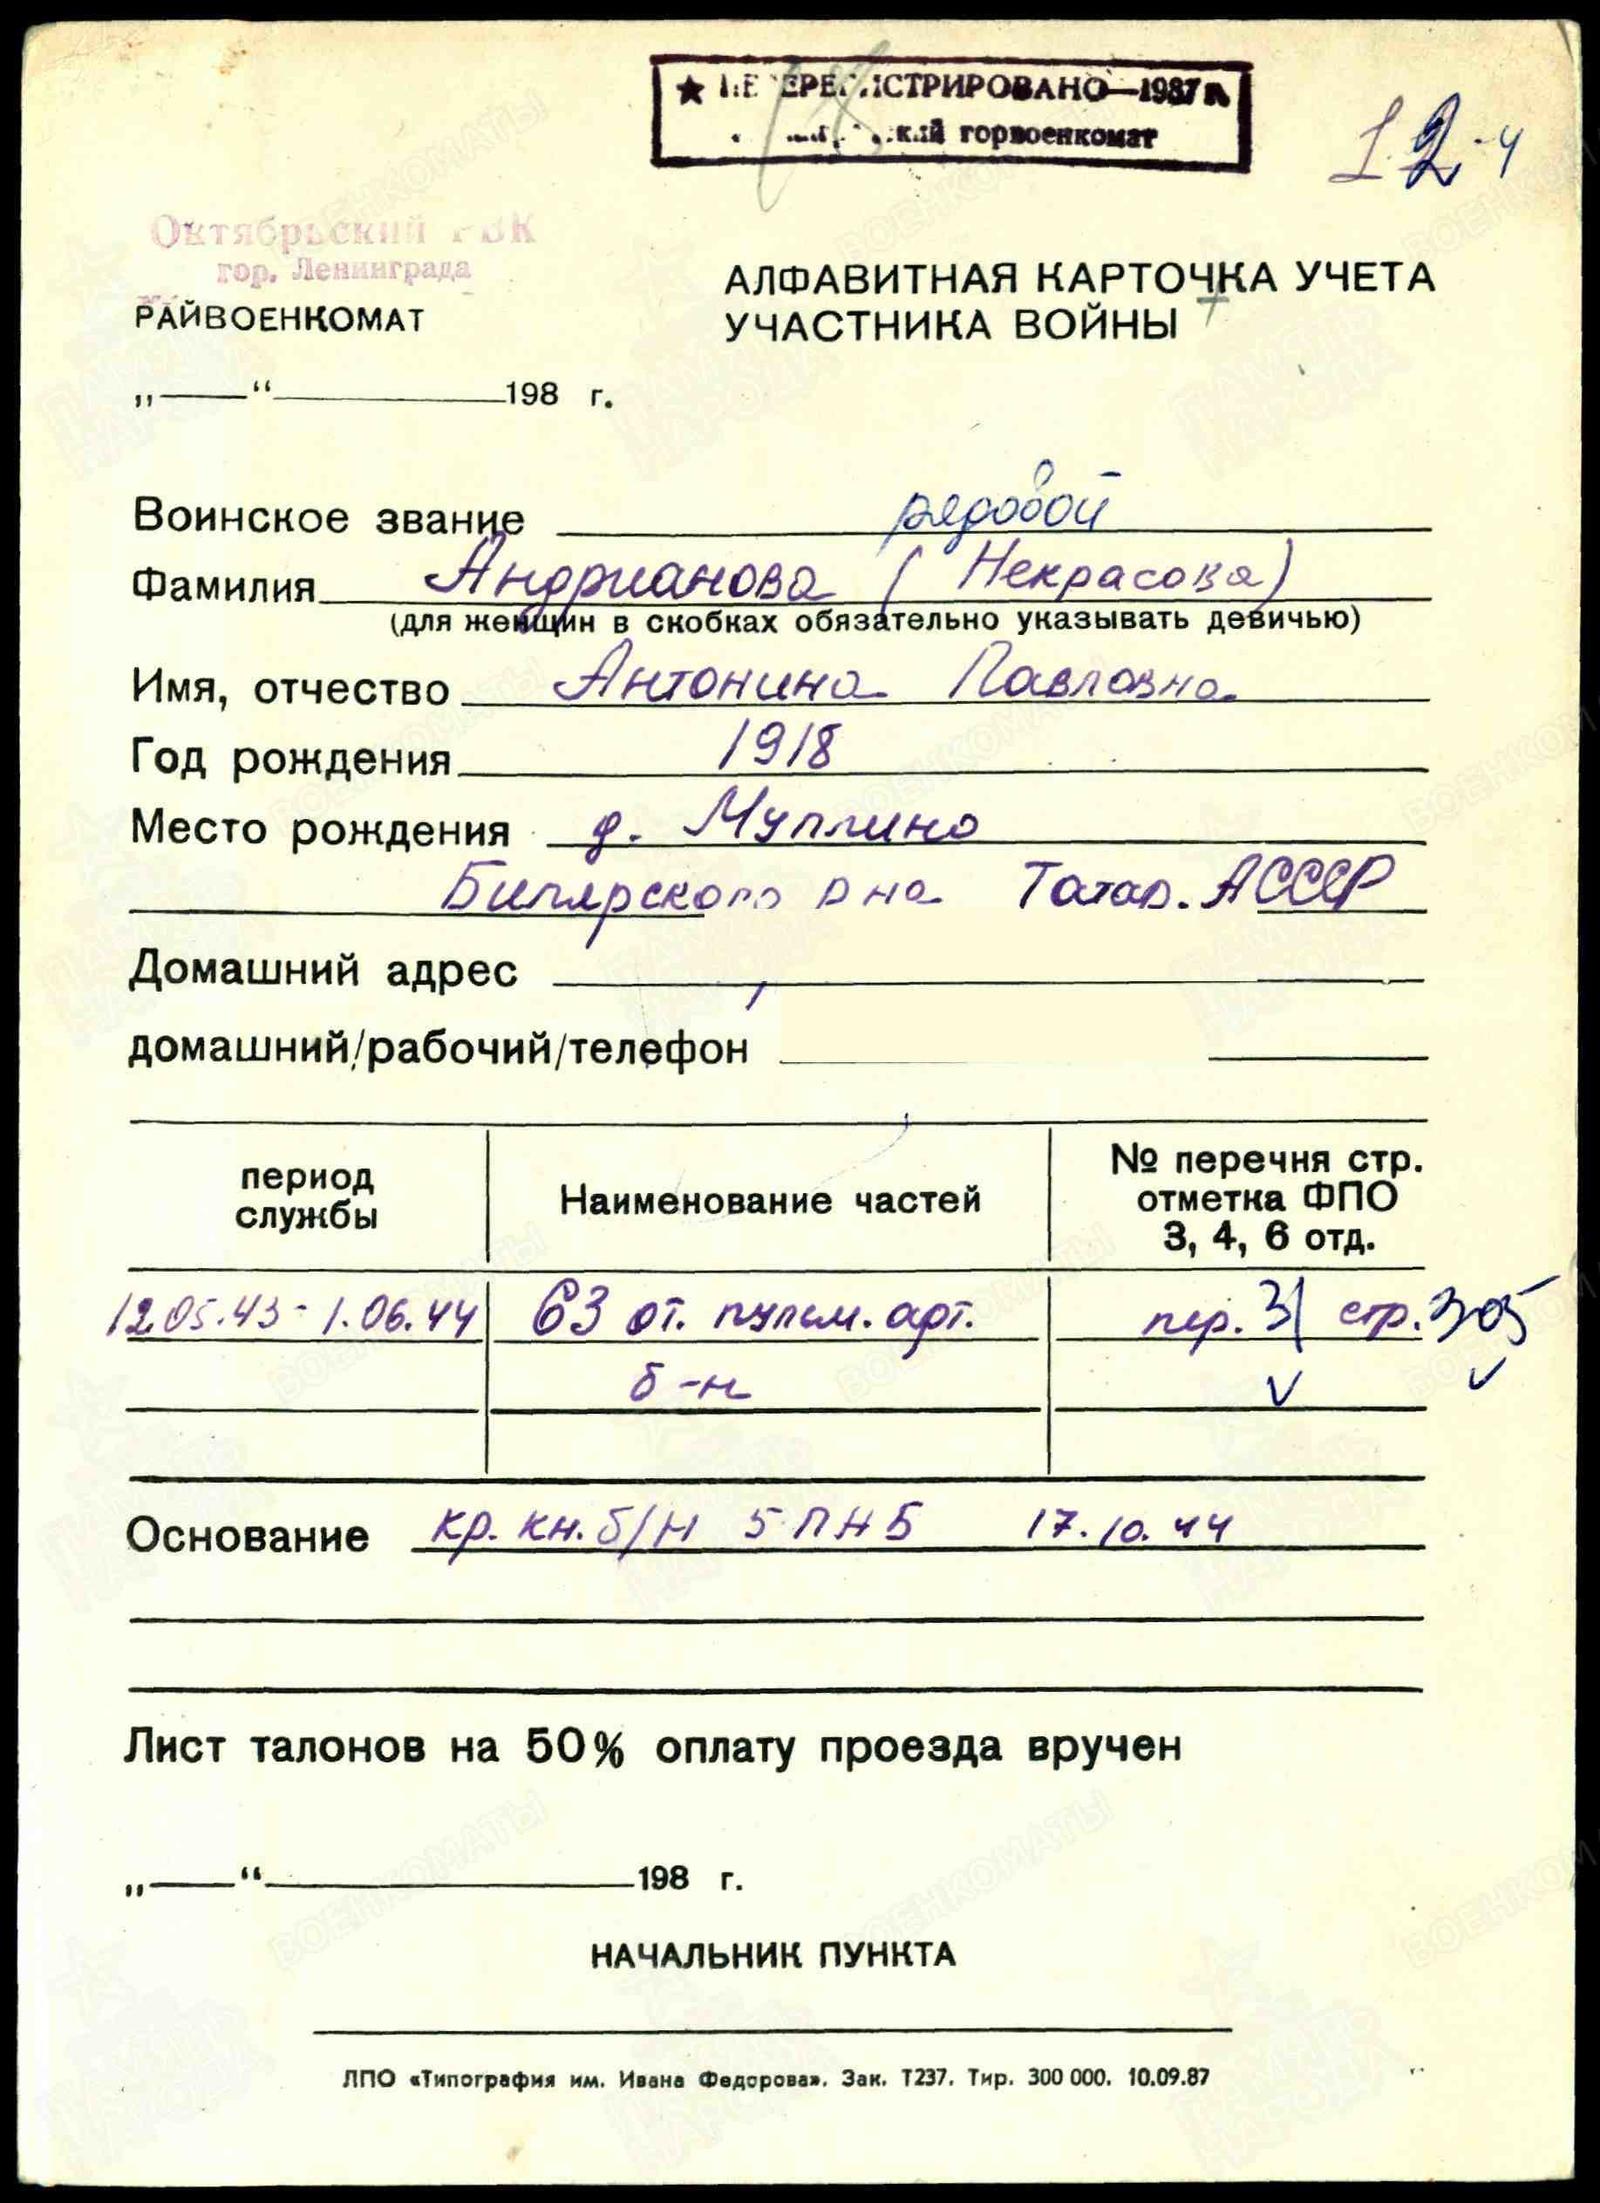 ПЕРЕРЕГИСТРИРОВАНО—1987 г.
горвоенкомат
12-4
Октябрьский РВК
гор. Ленинграда
РАЙВОЕНКОМАТ
АЛФАВИТНАЯ КАРТОЧКА УЧЕТА
УЧАСТНИКА ВОЙНЫ
„——“————198 г.
Воинское звание рядовой
Фамилия Андрианова (Некрасова)
(для женщин в скобках обязательно указывать девичью)
Имя, отчество Антонина Павловна
Год рождения 1918
Место рождения д. Муллино
Билярского р на Татар. АСССР
Домашний адрес
домашний/рабочий/телефон
период службы
Наименование частей
№ перечня стр. отметка ФПО 3, 4, 6 отд.
12.05.43 - 1.06.44 63 от. пульм. арт. пер. 31 стр. 305
б-н
Основание кр. кн. б/н 5 ПНБ 17.10.44
Лист талонов на 50% оплату проезда вручен
„——“————198 г.
НАЧАЛЬНИК ПУНКТА
ЛПО «Типография им. Ивана Федорова». Зак. Т237. Тир. 300 000. 10.09.87
ПАМЯТЬ НАРОДА
ВОЕНКОМАТЫ